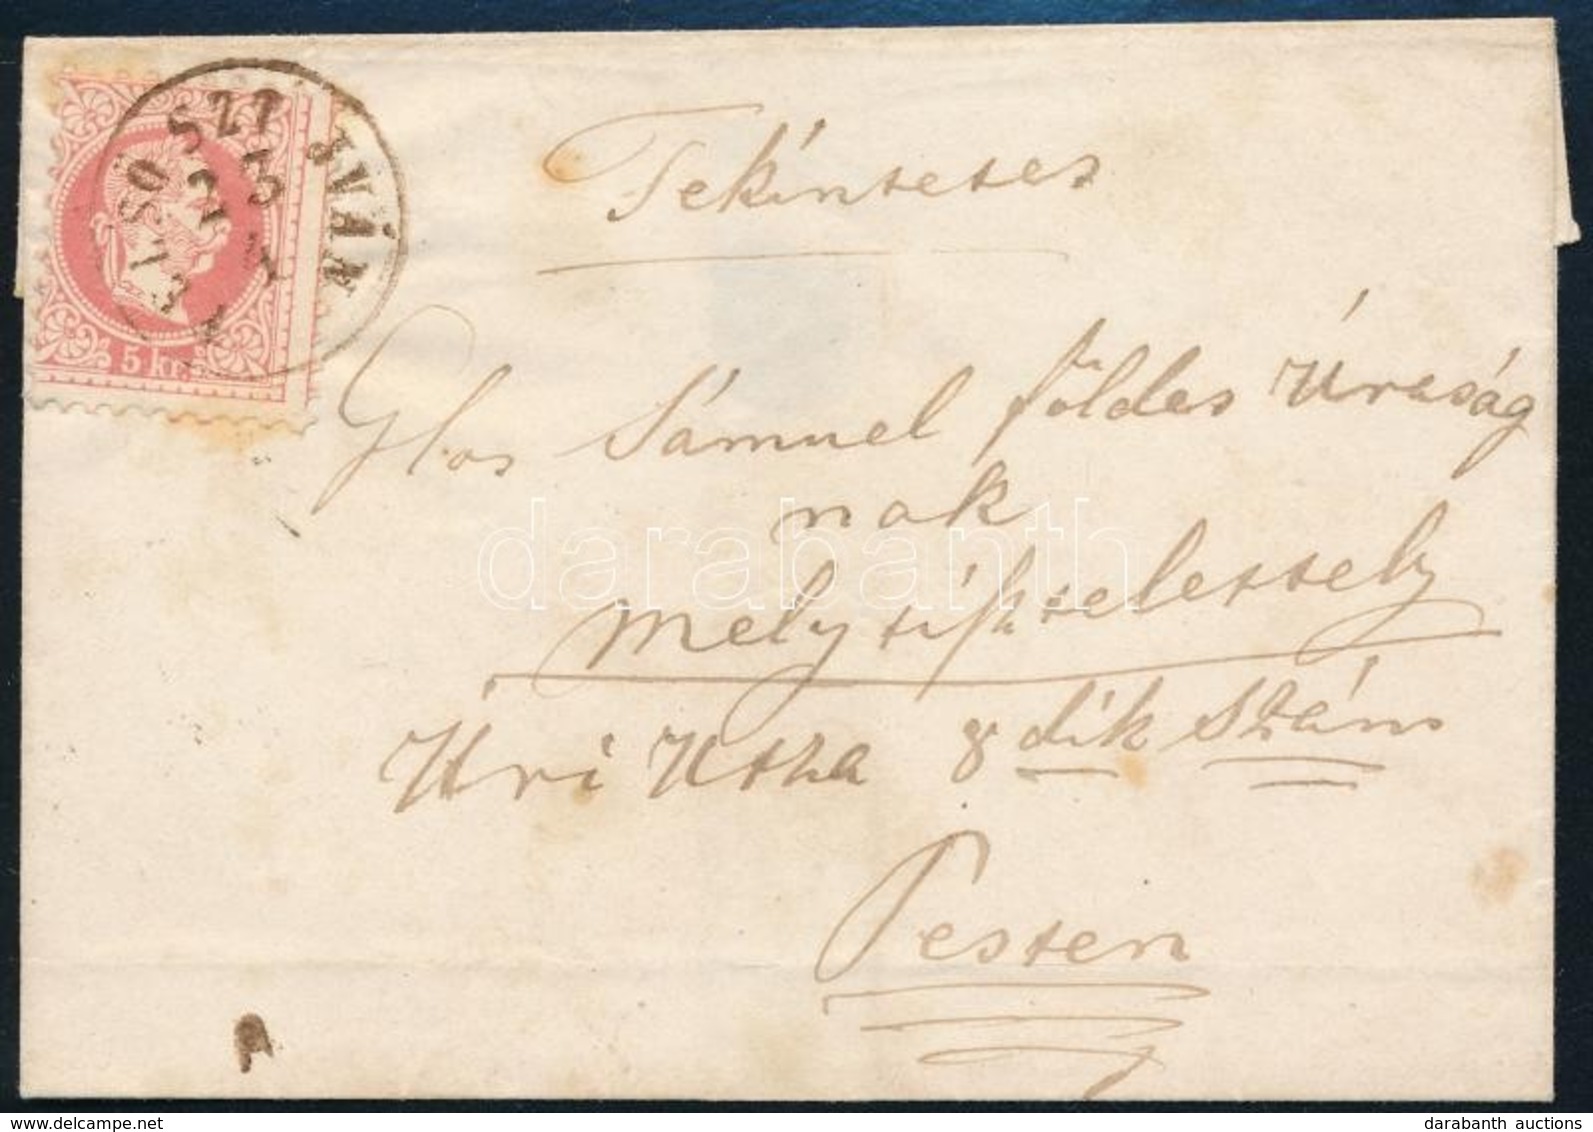 ALSÓ SZT IVÁN
23
1
5 kr.
Tekíntetes
Glos Sámuel földes Úraság
nak
mely tisztelettely
Úri Utza 8 dik Szám
Pesten
darabanth
darabanth auctions